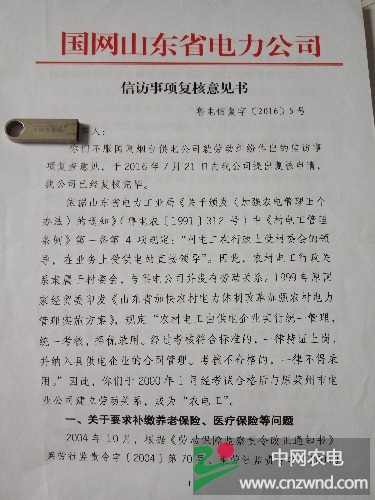 国网山东省电力公司
信访事项复核意见书
鲁电信复字〔2016〕5号
人：
你们不服国网烟台供电公司就劳动纠纷作出的信访事
项复查意见，于2016年7月21日向我公司提出复核申请，
我公司已经复核完毕。
依据山东省电力工业局《关于颁发〈加强农电管理五个
办法〉的通知》（鲁电农〔1991〕312号）中《村电工管理
条例》第一条第4项规定：“村电工在行政上受村委会的领
导，在业务上受供电站直接领导”。因此，农村电工行政关
系隶属于村委会，与供电公司并没有劳动关系。1999年原国
家经贸委印发《山东省加快农村电力体制改革加强农村电力
管理实施方案》，规定“农村电工由供电企业实行统一管理，
统一考核，择优录用。经过考核符合条件的，一律持证上岗，
并纳入县供电企业的合同管理。考核不合格的，一律不得录
用。”因此，你们于2000年1月经考试合格后与原莱州市电
业公司建立劳动关系，成为“农电工”。
一、关于要求补缴养老保险、医疗保险等问题
2004年10月，根据《劳动保障监察责令改正通知书》
莱劳社监责令字〔2004〕第70号
1
中网农电
www.cnzwnd.com